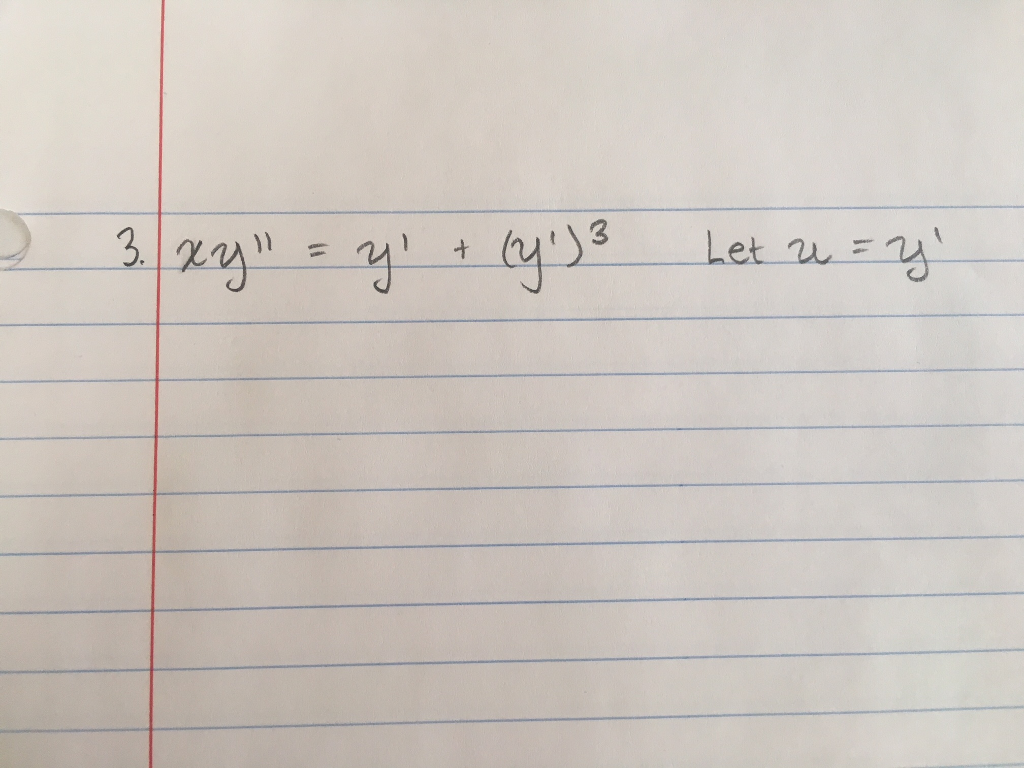 3. xy'' = y' + (y')³ Let u = y'